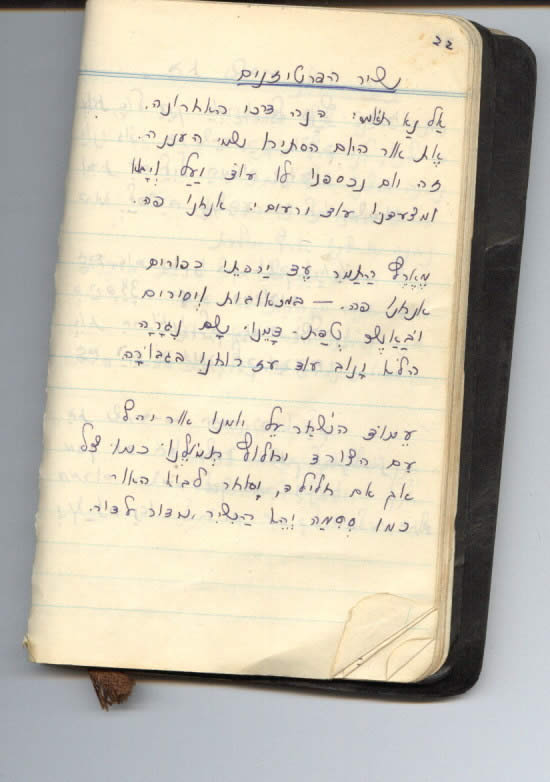 22
שיר הפרטיזנים
אַל נא תאמר: הנה דרכי האחרונה.
אֶת אור היום הסתירו שמי העננה.
זה יום נכספנו לו עוד יַעַל וְיָבֹא
ומצעדנו עוד ירעים: אנחנו פה.
מֵאֶרֶץ הַתָּמָר עַד יַרְכְּתֵי כפורים
אנחנו פה. – במכאובות וְיסורים
וּבַאֲשֶׁר טִפַּת דָּמֵנוּ שָׁם נִגְּרָה
הלא יָנוּב עוד עז רוחנו בגבורָה
עַמוּד השַׁחַר עַל יומנו אור יהל
עם הצורר יחלוף תְּמוֹלֵנוּ כמו צל
אך אם חלילה, יְאחר לבוא האור
כמו סִסְמָה יְהֵא הַשִּׁיר מִדור לדור.